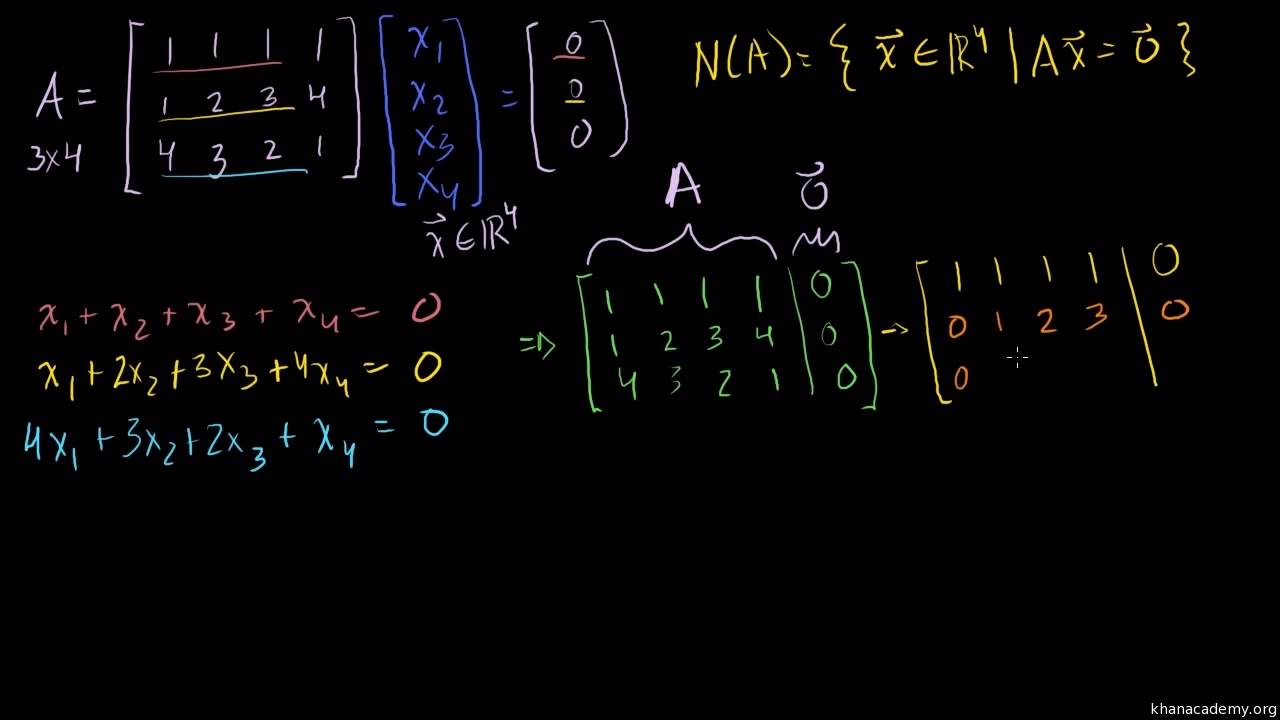 A = [ 1 1 1 1 ; 1 2 3 4 ; 4 3 2 1 ] [ x₁ ; x₂ ; x₃ ; x₄ ] = [ 0 ; 0 ; 0 ]
3x4
x⃗ ∈ ℝ⁴
N(A) = { x⃗ ∈ ℝ⁴ | Ax⃗ = 0⃗ }
x₁ + x₂ + x₃ + x₄ = 0
x₁ + 2x₂ + 3x₃ + 4x₄ = 0
4x₁ + 3x₂ + 2x₃ + x₄ = 0
A 0⃗
⇒ [ 1 1 1 1 | 0 ; 1 2 3 4 | 0 ; 4 3 2 1 | 0 ] → [ 1 1 1 1 | 0 ; 0 1 2 3 | 0 ; 0
khanacademy.org